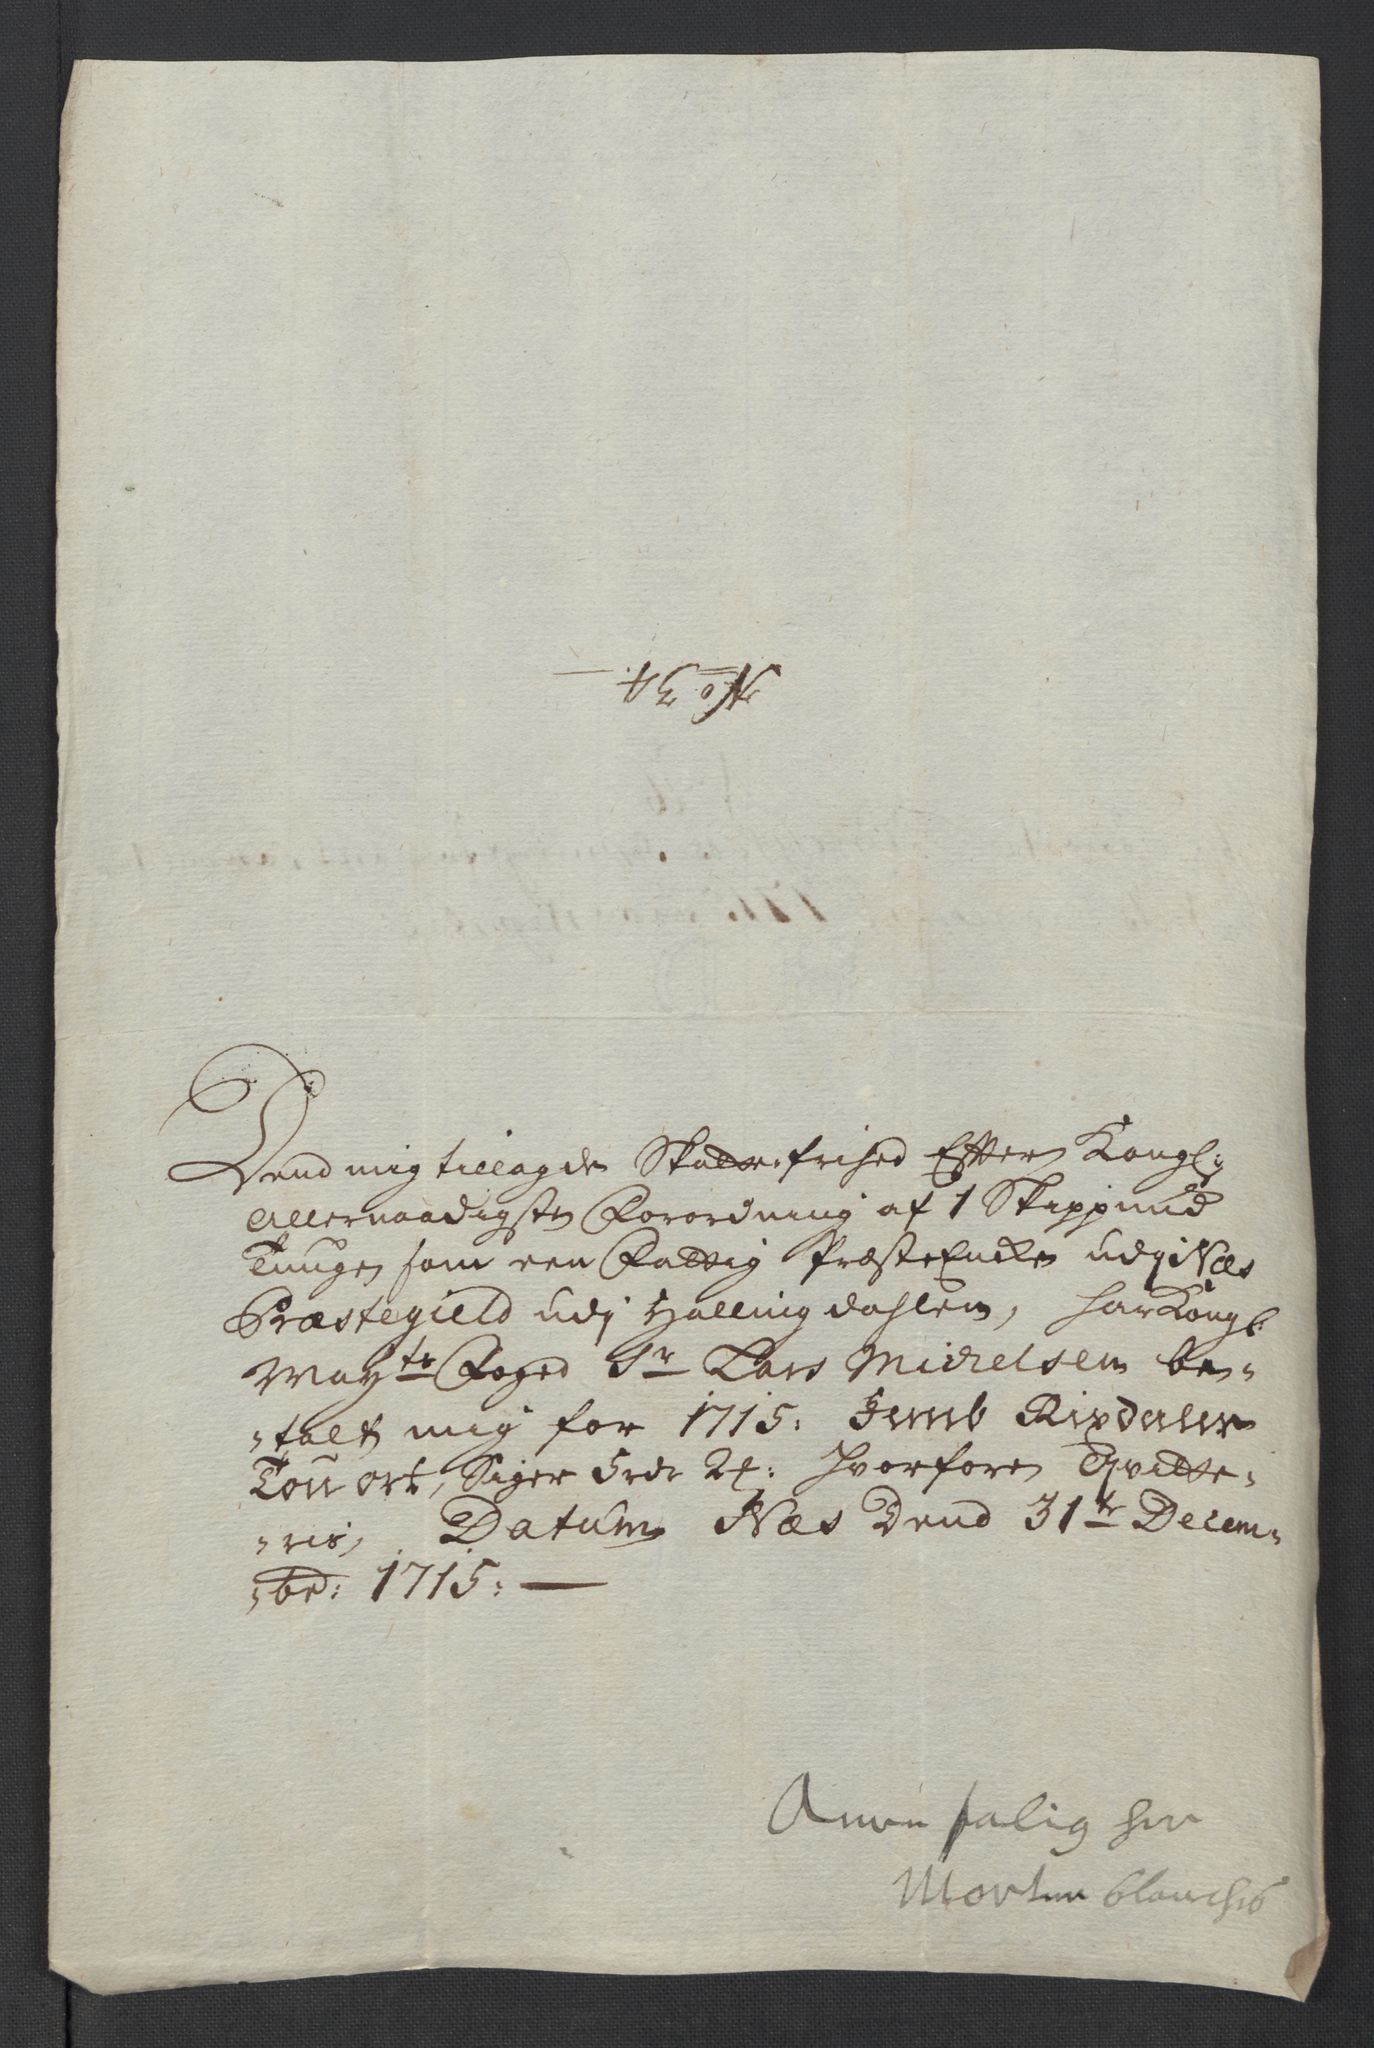 No 34.
Dend mig tillagde Skatte-frihed Efter Kongl:
Allernaadigste Forordning af 1 Skippund
Tunge som een Fattig PræsteEncke udj Næs
Præstegield udj Hallingdahlen, har Kongl:
May:ts Foged Sr Lars Michelsen be-
-talt mig for 1715: Femb Rixdaler
Tou ort, Siger 5 rdr 2 ort: hvorfore Qvitte-
-ris, Datum Næs Dend 31te Decem-
-br: 1715:
Anne salig her
Morten blanchs